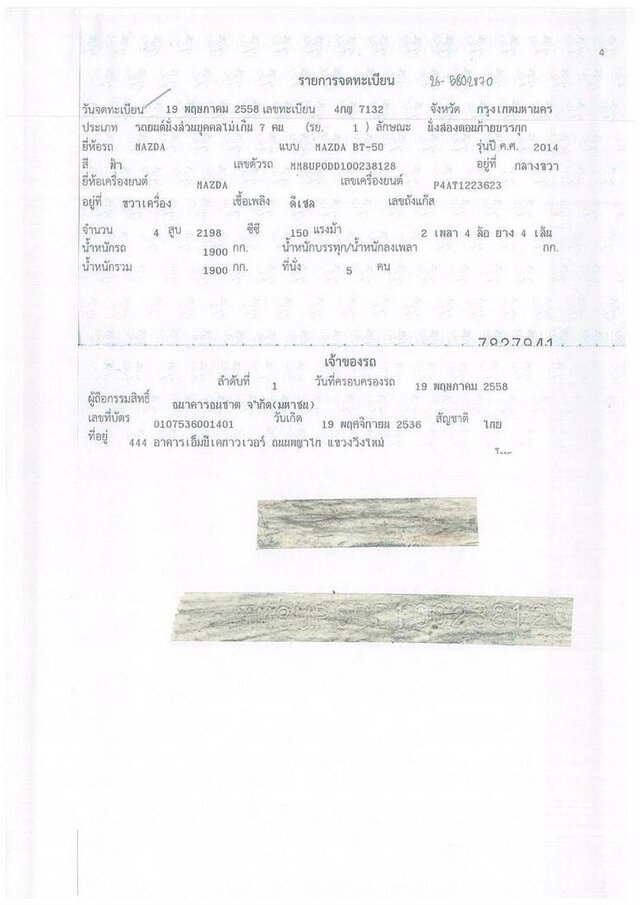 4
รายการจดทะเบียน 26-5802870
วันจดทะเบียน 19 พฤษภาคม 2558 เลขทะเบียน 4กญ 7132 จังหวัด กรุงเทพมหานคร
ประเภท รถยนต์นั่งส่วนบุคคลไม่เกิน 7 คน (รย. 1 ) ลักษณะ นั่งสองตอนท้ายบรรทุก
ยี่ห้อรถ MAZDA แบบ MAZDA BT-50 รุ่นปี ค.ศ. 2014
สี ฟ้า เลขตัวรถ MM8UP0DD100238128 อยู่ที่ กลางขวา
ยี่ห้อเครื่องยนต์ MAZDA เลขเครื่องยนต์ P4AT1223623
อยู่ที่ ขวาเครื่อง เชื้อเพลิง ดีเซล เลขถังแก๊ส
จำนวน 4 สูบ 2198 ซีซี 150 แรงม้า 2 เพลา 4 ล้อ ยาง 4 เส้น
น้ำหนักรถ 1900 กก. น้ำหนักบรรทุก/น้ำหนักลงเพลา กก.
น้ำหนักรวม 1900 กก. ที่นั่ง 5 คน
7827941
เจ้าของรถ
ลำดับที่ 1 วันที่ครอบครองรถ 19 พฤษภาคม 2558
ผู้ถือกรรมสิทธิ์ ธนาคารธนชาต จำกัด(มหาชน)
เลขที่บัตร 0107536001401 วันเกิด 19 พฤศจิกายน 2536 สัญชาติ ไทย
ที่อยู่ 444 อาคารเอ็มบีเคทาวเวอร์ ถนนพญาไท แขวงวังใหม่